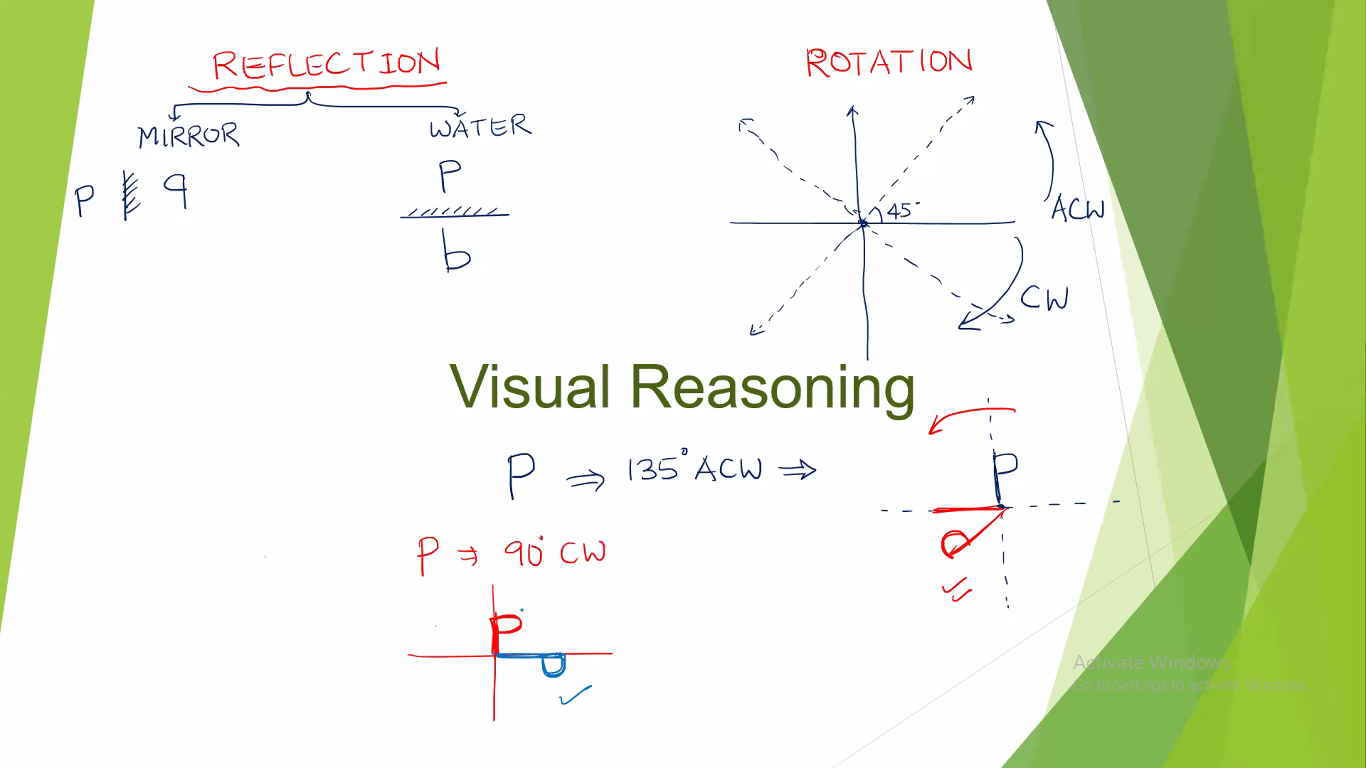 REFLECTION
MIRROR
WATER
P q
P
b
ROTATION
45°
ACW
CW
Visual Reasoning
P ⇒ 135° ACW ⇒
P
P
P ⇒ 90° CW
P
P
Activate Windows
Go to Settings to activate Windows.